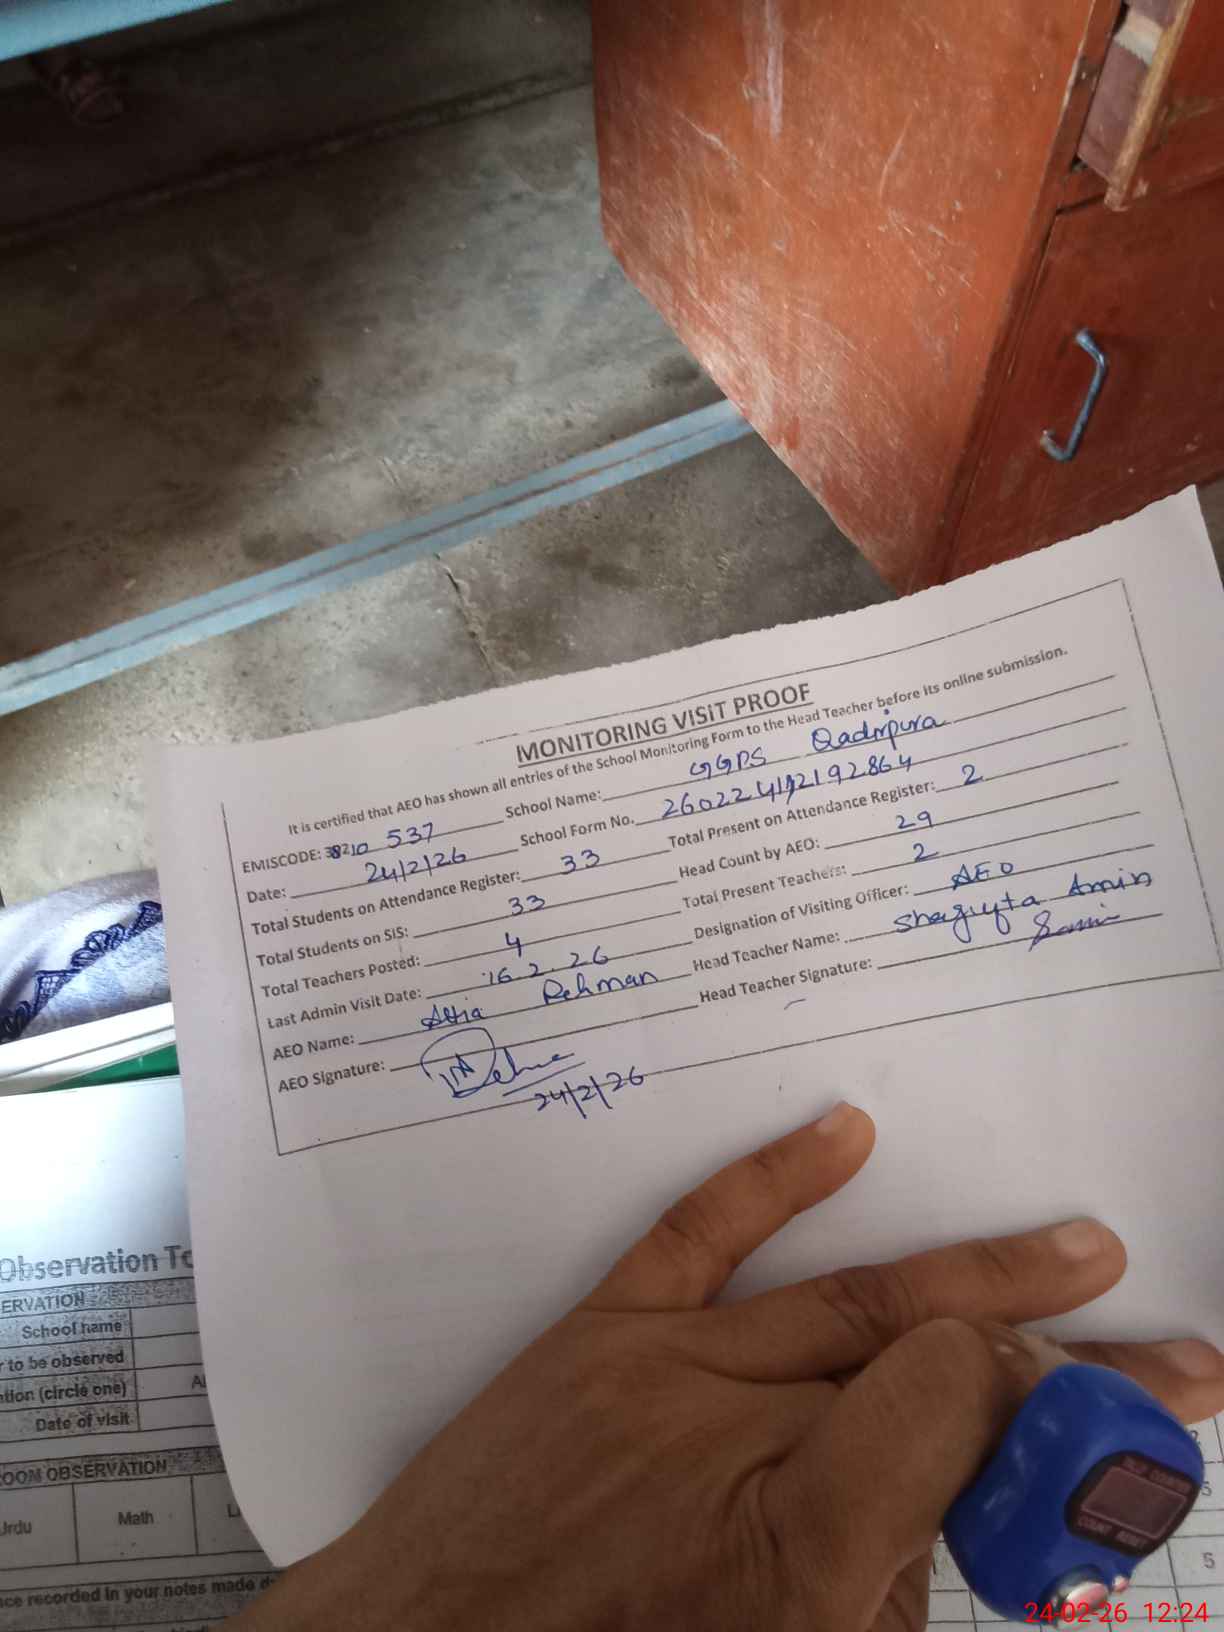 MONITORING VISIT PROOF
It is certified that AEO has shown all entries of the School Monitoring Form to the Head Teacher before its online submission.
EMISCODE: 38210 537 School Name: GGPS Qadirpura
Date: 24/2/26 School Form No. 260224112192864
Total Students on Attendance Register: 33 Total Present on Attendance Register: 2
Total Students on SIS: 33 Head Count by AEO: 29
Total Teachers Posted: 4 Total Present Teachers: 2
Last Admin Visit Date: 16.2.26 Designation of Visiting Officer: AEO
AEO Name: Atia Rehman Head Teacher Name: Shagufta Amin
AEO Signature: Head Teacher Signature:
24/2/26
Observation
ERVATION
School name
to be observed
(circle one)
Date of visit
OOM OBSERVATION
Urdu Math
recorded in your notes made
COUNT RESET
5
5
24-02-26 12:24